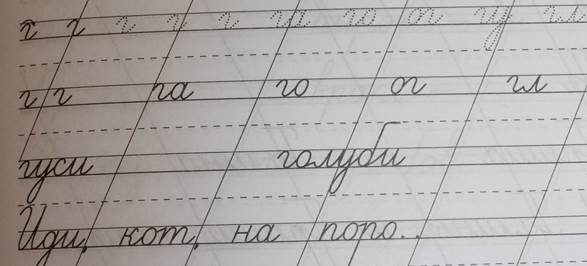 г г г г г га го ог гу гл
г г га го ог гл
гуси голуби
Иди, кот, на поро..